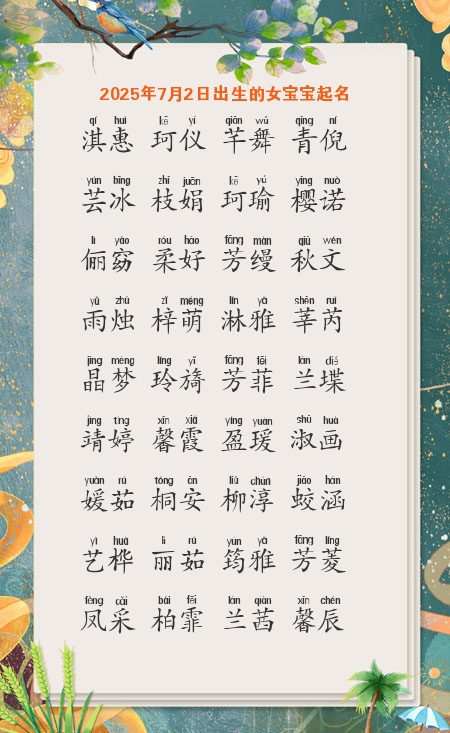 2025年7月2日出生的女宝宝起名
qí huì kē yí qiān wú qīng ní
淇惠 珂仪 芊舞 青倪
yún bīng zhī juān kē yú yīng nuò
芸冰 枝娟 珂瑜 樱诺
lì yǎo róu hǎo fāng màn qiū wén
俪窈 柔好 芳缦 秋文
yǔ zhú zǐ méng lín yǎ shēn ruì
雨烛 梓萌 淋雅 莘芮
jīng mèng líng yǐ fāng fēi lán dié
晶梦 玲旖 芳菲 兰堞
jìng tíng xīn xiá yíng yuàn shū huà
靖婷 馨霞 盈瑗 淑画
yuàn rú tóng ān liǔ chún jiāo hán
媛茹 桐安 柳淳 蛟涵
yì huà lì rú yún yǎ fāng líng
艺桦 丽茹 筠雅 芳菱
fèng cǎi bǎi fēi lán qiàn xīn chén
凤采 柏霏 兰茜 馨辰